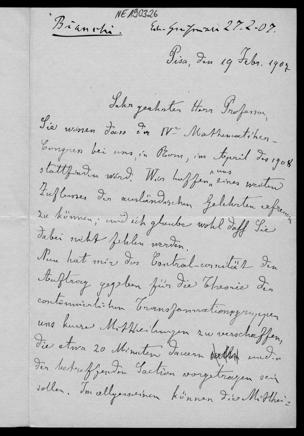 NEA90326
Bianchi. 27.2.07.
Pisa, den 19 Febr. 1907
Sehr geehrter Herr Professor,
Sie wissen dass der IVte Mathematiker-
Congress bei uns, in Rom, im April des 1908
stattfinden wird. Wir hoffen uns eines weiten
Zuflusses der ausländischen Gelehrten erfreuen
zu können, und ich glaube wohl dass Sie
dabei nicht fehlen werden.
Nun hat mir das Central-comität den
Auftrag gegeben für die Theorie der
continuierlichen Transformationsgruppen
uns kurze Mittheilungen zu verschaffen,
die etwa 20 Minuten dauern und in
der betreffenden Section vorgetragen sein
sollen. Im allgemeinen können die Mitthei-